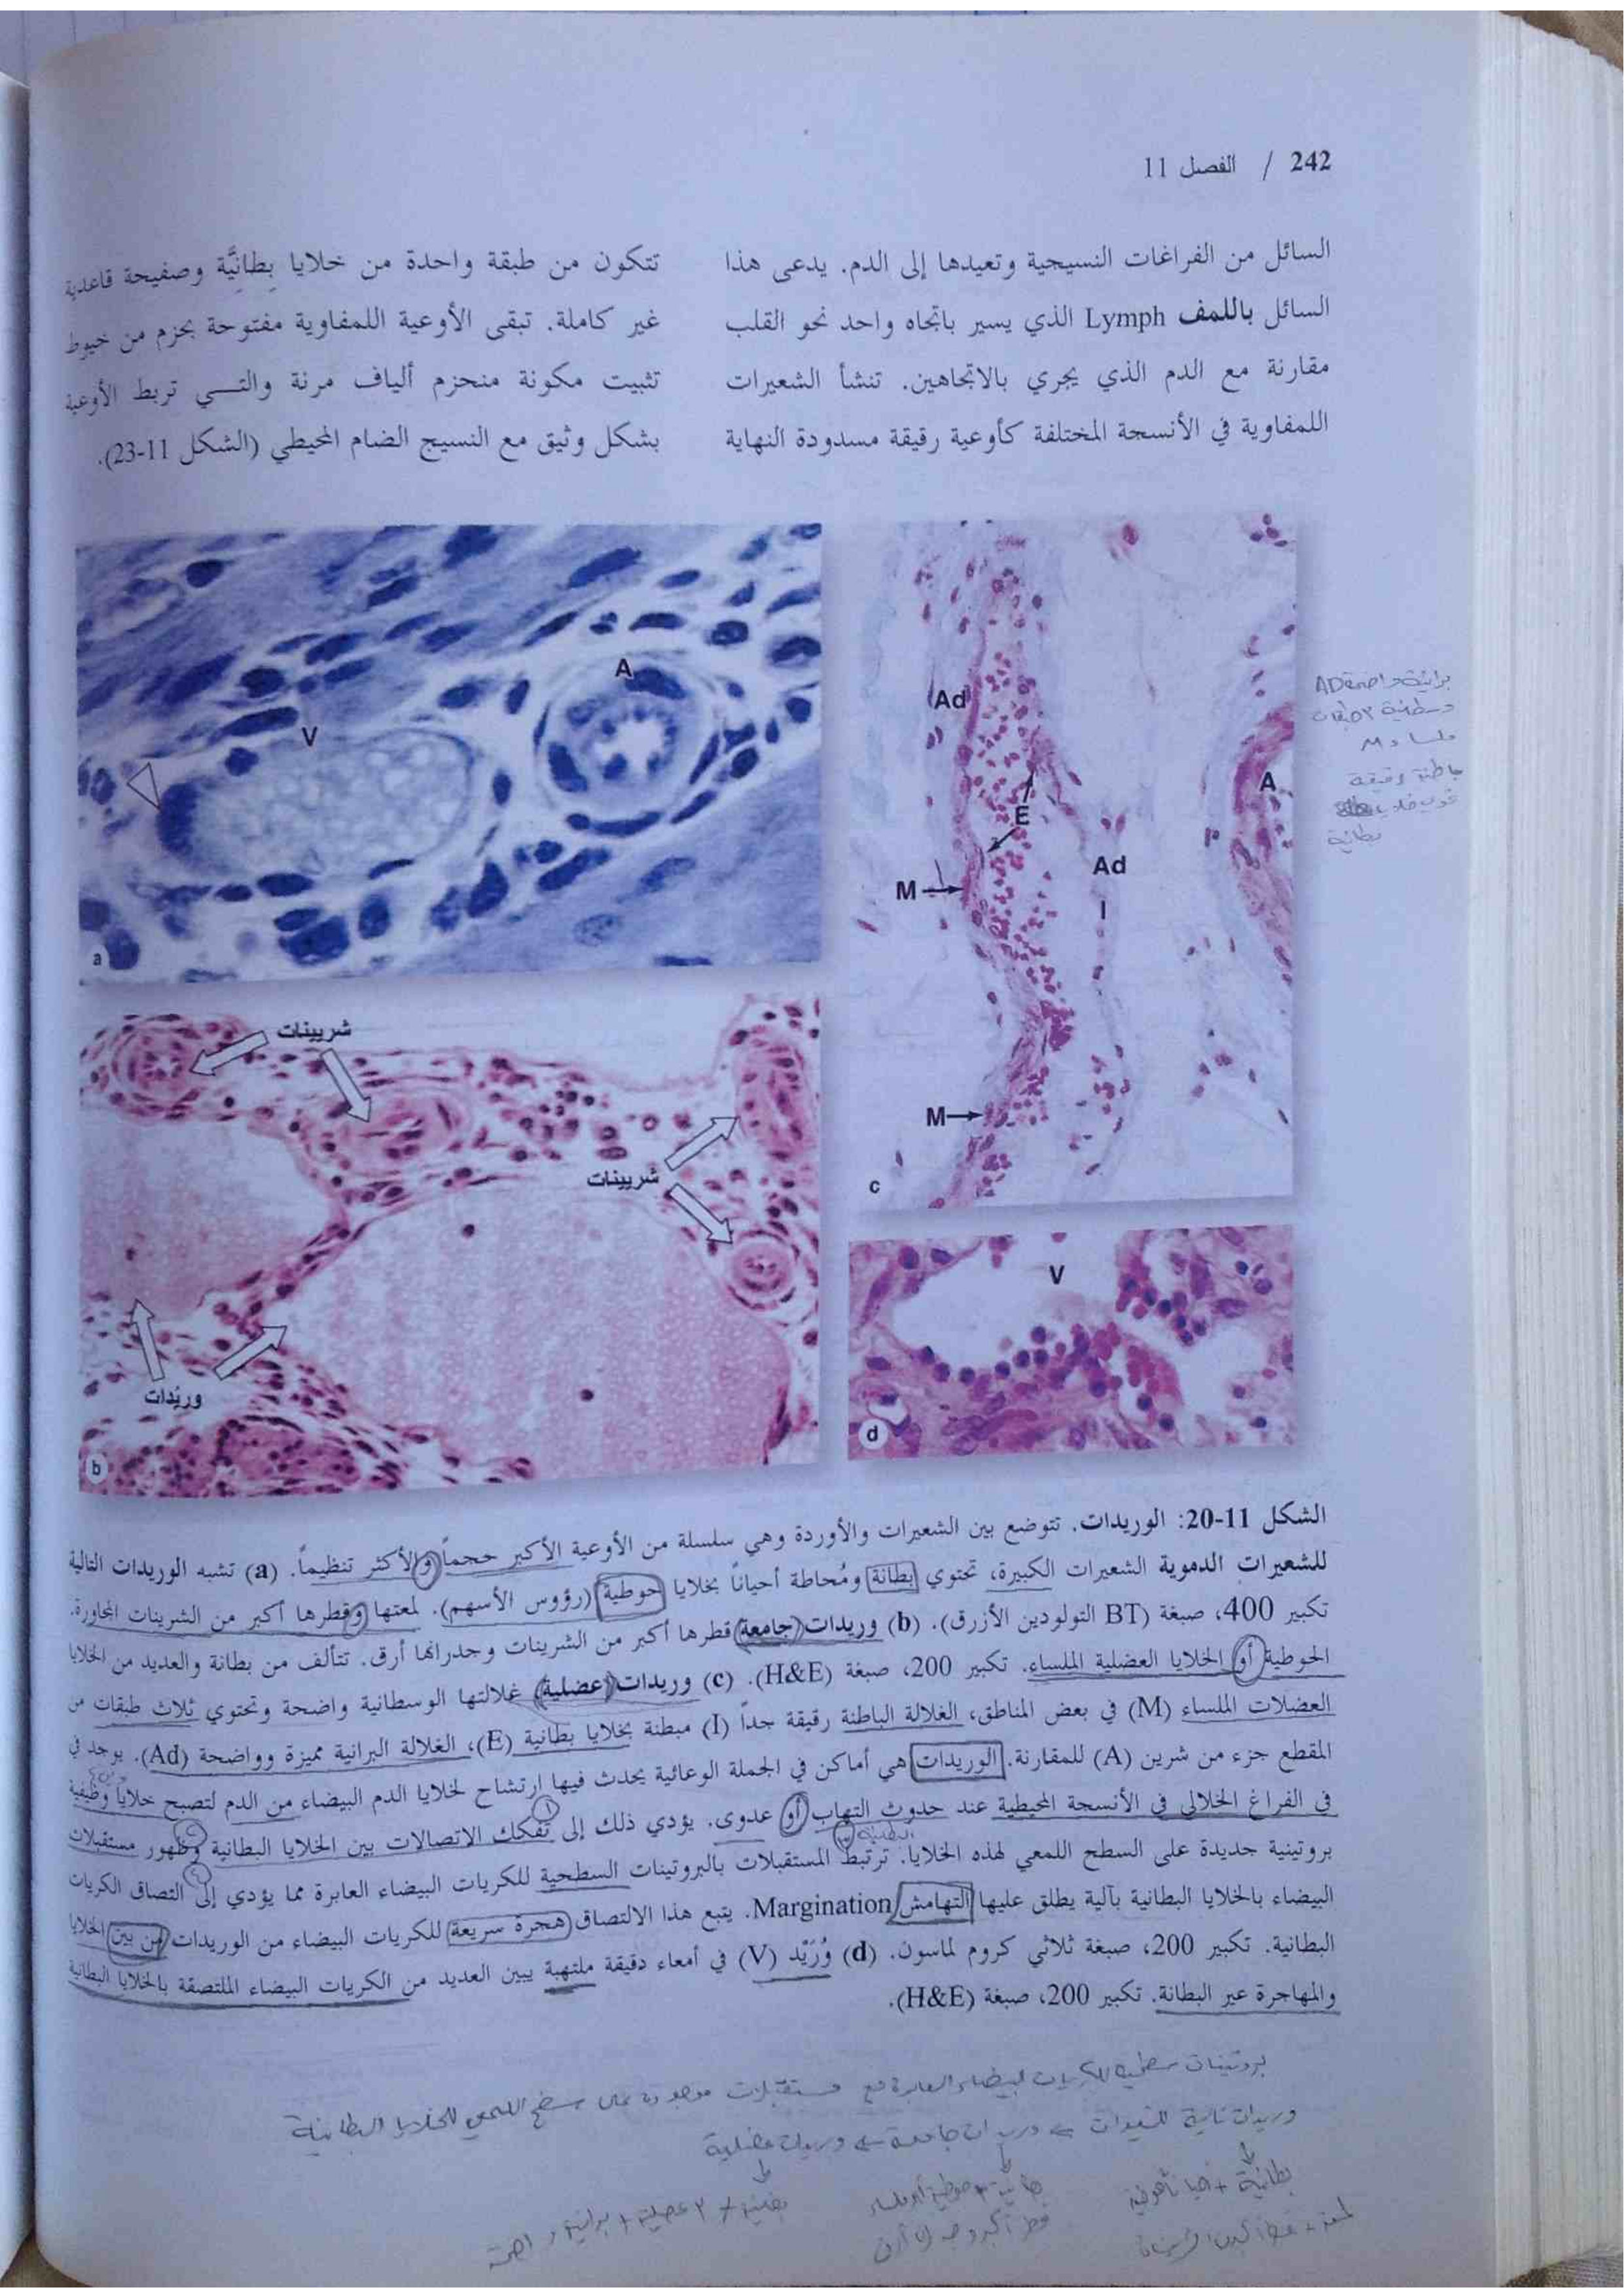 242 / الفصل 11
السائل من الفراغات النسيجية وتعيدها إلى الدم. يدعى هذا
السائل باللمف Lymph الذي يسير باتجاه واحد نحو القلب
مقارنة مع الدم الذي يجري بالاتجاهين. تنشأ الشعيرات
اللمفاوية في الأنسجة المختلفة كأوعية رقيقة مسدودة النهاية
تتكون من طبقة واحدة من خلايا بِطانِيَّة وصفيحة قاعدية
غير كاملة. تبقى الأوعية اللمفاوية مفتوحة بحزم من خيوط
تثبيت مكونة منحزم ألياف مرنة والتي تربط الأوعية
بشكل وثيق مع النسيج الضام المحيطي (الشكل 11-23).
A
V
a
شريينات
شريينات
وريْدات
b
Ad
A
E
Ad
M
I
M
c
V
d
برانية واضحة AD
وسطانية ٣ طبقات
ملساء M
باطنة رقيقة
بطانية
الشكل 11-20: الوريدات. تتوضع بين الشعيرات والأوردة وهي سلسلة من الأوعية الأكبر حجماً والأكثر تنظيماً. (a) تشبه الوريدات التالية
للشعيرات الدموية الشعيرات الكبيرة، تحتوي بطانة ومُحاطة أحياناً بخلايا حوطية (رؤوس الأسهم). لمعتها وقطرها أكبر من الشرينات المجاورة.
تكبير 400، صبغة (BT التولودين الأزرق). (b) وريدات (جامعة) قطرها أكبر من الشرينات وجدرانها أرق. تتألف من بطانة والعديد من الخلايا
الحوطية أو الخلايا العضلية الملساء. تكبير 200، صبغة (H&E). (c) وريدات (عضلية) غلالتها الوسطانية واضحة وتحتوي ثلاث طبقات من
العضلات الملساء (M) في بعض المناطق، الغلالة الباطنة رقيقة جداً (I) مبطنة بخلايا بطانية (E)، الغلالة البرانية مميزة وواضحة (Ad). يوجد في
المقطع جزء من شرين (A) للمقارنة. الوريدات هي أماكن في الجملة الوعائية يحدث فيها ارتشاح لخلايا الدم البيضاء من الدم لتصبح خلايا وظيفية
في الفراغ الخلالي في الأنسجة المحيطية عند حدوث التهاب أو عدوى. يؤدي ذلك إلى تفكك الاتصالات بين الخلايا البطانية وظهور مستقبلات
البطانية
بروتينية جديدة على السطح اللمعي لهذه الخلايا. ترتبط المستقبلات بالبروتينات السطحية للكريات البيضاء العابرة مما يؤدي إلى التصاق الكريات
البيضاء بالخلايا البطانية بآلية يطلق عليها التهامش Margination. يتبع هذا الالتصاق هجرة سريعة للكريات البيضاء من الوريدات من بين الخلايا
البطانية. تكبير 200، صبغة ثلاثي كروم لماسون. (d) وُرَيْد (V) في أمعاء دقيقة ملتهبة يبين العديد من الكريات البيضاء الملتصقة بالخلايا البطانية
والمهاجرة عبر البطانة. تكبير 200، صبغة (H&E).
بروتينات سطحية للكريات البيضاء العابرة مع مستقبلات موجودة على سطح اللمعي للخلايا البطانية
وريدات تالية للشعيرات ← وريدات جامعة ← وريدات عضلية
بطانية + أحيانا حوطية
بطانية + حوطية أو ملساء
قطر أكبر وجدران أرق
بطانية + ٣ عضلية + برانية واضحة